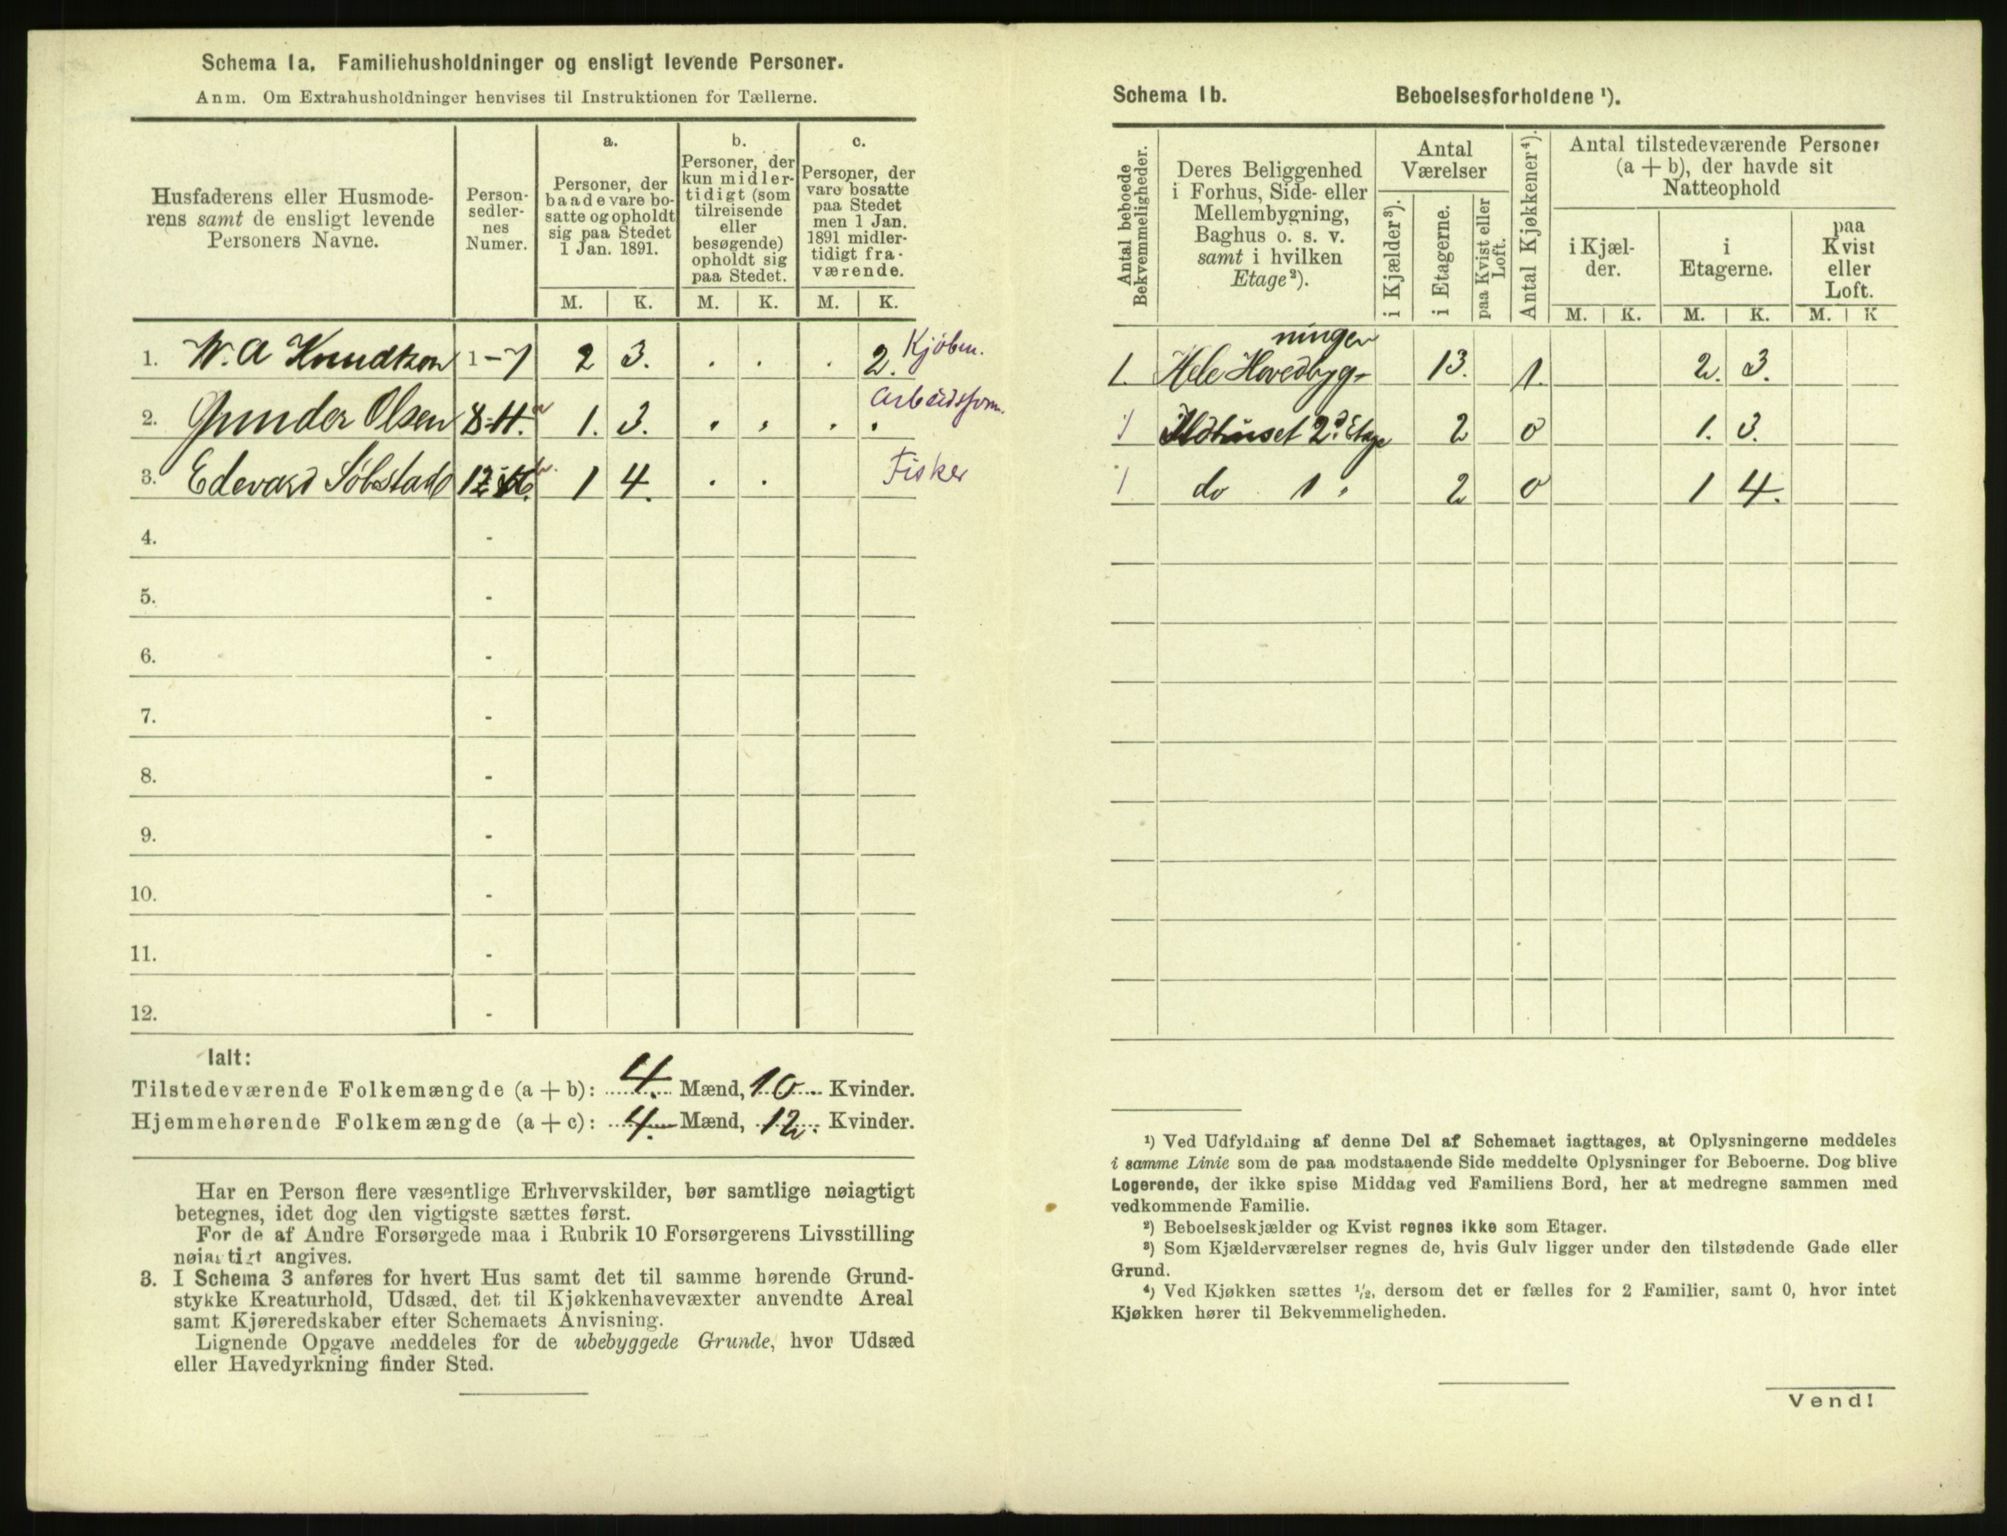 Schema 1a. Familiehusholdninger og ensligt levende Personer.
Anm. Om Extrahusholdninger henvises til Instruktionen for Tællerne.
Husfaderens eller Husmode-
rens samt de ensligt levende
Personers Navne.
Person-
sedler-
nes
Numer.
a.
Personer, der
baade vare bo-
satte og opholdt
sig paa Stedet
1 Jan. 1891.
b.
Personer, der
kun midler-
tidigt (som
tilreisende
eller
besøgende)
opholdt sig
paa Stedet.
c.
Personer, der
vare bosatte
paa Stedet
men 1 Jan.
1891 midler-
tidigt fra-
værende.
M. K. M. K. M. K.
1. W. A Knudtzon 1-7 2 3. . . . 2. Kjöbm.
2. Gunder Olsen 8-11. a 1. 3. . . . . Arbeidsform.
3. Edevard Söbstad 12- 1 4. . . Fisker
4. -
5. -
6. -
7. -
8. -
9. -
10. -
11. -
12. -
Ialt:
Tilstedeværende Folkemængde (a + b): 4. Mænd, 10. Kvinder.
Hjemmehørende Folkemængde (a + c): 4. Mænd, 12. Kvinder.
Har en Person flere væsentlige Erhvervskilder, bør samtlige nøiagtigt
betegnes, idet dog den vigtigste sættes først.
For de af Andre Forsørgede maa i Rubrik 10 Forsørgerens Livsstilling
nøiagtigt angives.
3. I Schema 3 anføres for hvert Hus samt det til samme hørende Grund-
stykke Kreaturhold, Udsæd, det til Kjøkkenhavevæxter anvendte Areal
samt Kjøreredskaber efter Schemaets Anvisning.
Lignende Opgave meddeles for de ubebyggede Grunde, hvor Udsæd
eller Havedyrkning finder Sted.
Schema 1b. Beboelsesforholdene ¹).
Antal beboede
Bekvemmeligheder.
Deres Beliggenhed
i Forhus, Side- eller
Mellembygning,
Baghus o. s. v.
samt i hvilken
Etage²).
Antal
Værelser
i Kjælder³).
i Etagerne.
paa Kvist eller
Loft.
Antal Kjøkkener⁴).
Antal tilstedeværende Personer
(a + b), der havde sit
Natteophold
i Kjæl-
der.
i
Etagerne.
paa
Kvist
eller
Loft.
M. K. M. K. M. K
ningen
1. Hele Hovedbyg- 13. 1. 2. 3.
1 Ildhuset 2d. Etage 2 0 1. 3.
1 do 1 " 2 0 1 4.
¹) Ved Udfyldning af denne Del af Schemaet iagttages, at Oplysningerne meddeles
i samme Linie som de paa modstaaende Side meddelte Oplysninger for Beboerne. Dog blive
Logerende, der ikke spise Middag ved Familiens Bord, her at medregne sammen med
vedkommende Familie.
²) Beboelseskjælder og Kvist regnes ikke som Etager.
³) Som Kjælderværelser regnes de, hvis Gulv ligger under den tilstødende Gade eller
Grund.
⁴) Ved Kjøkken sættes ½, dersom det er fælles for 2 Familier, samt 0, hvor intet
Kjøkken hører til Bekvemmeligheden.
Vend!